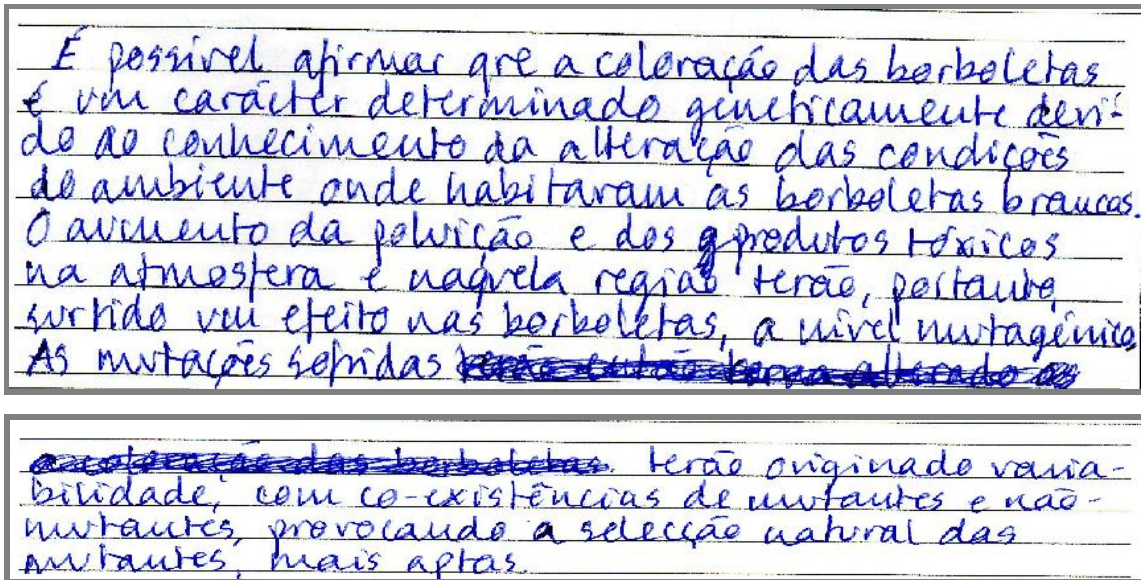 É possível afirmar que a coloração das borboletas
é um carácter determinado geneticamente devi-
do ao conhecimento da alteração das condições
do ambiente onde habitavam as borboletas brancas.
O aumento da poluição e dos produtos tóxicos
na atmosfera e naquela região terão, portanto,
surtido um efeito nas borboletas, a nível mutagénico.
As mutações sofridas
a coloração das borboletas terão originado varia-
bilidade, com co-existências de mutantes e não-
mutantes, provocando a selecção natural das
mutantes, mais aptas.